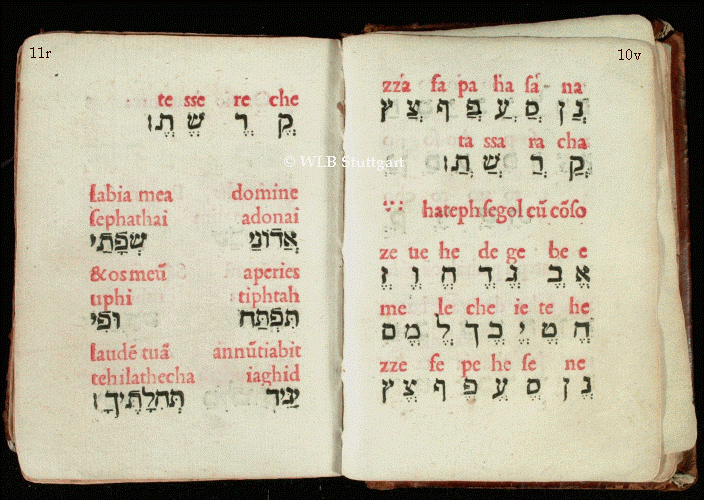 10v
zzá fa pa ha ſá- na
נֲ ן סֲ עֲ פֲ ף צֲ ץ
ta ssa ra cha
קֲ רֲ שֲ תֲ׃
hateph ſegol cũ cõſo
ze ue he de ge be e
אֱ בֱ גֱ דֱ הֱ וֱ זֱ
me le che ie te he
חֱ טֱ יֱ כֱ ך לֱ מֱ ם
zze fe pe he ſe ne
נֱ ן סֱ עֱ פֱ ף צֱ ץ
11r
te sse re che
קֱ רֱ שֱ תֱ׃
© WLB Stuttgart
labia mea domine
ſephathai adonai
אֲדֹנַי שְׂפָתַי
& os meũ aperies
uphi tiphtah
תִּפְתַּח וּפִי
laudẽ tuã annũtiabit
tehilathecha iaghid
יַגִּיד תְּהִלָּתֶיךָ׃